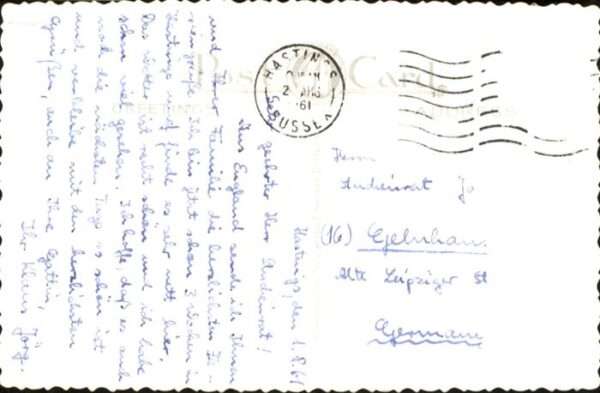 Post Card
HASTINGS
2 AUG
1961
SUSSEX
Hastings, den 1.8.61
Sehr geehrter Herr
Aus England sende ich Ihnen
und Ihrer Familie die herzlichsten
Ich bin jetzt schon 3 Wochen in
Hastings und finde es sehr nett hier.
Das Wetter ist recht schön und ich habe
schon viel gesehen. Ich hoffe, daß es auch
noch die nächsten Tage so schön ist
und verbleibe mit den herzlichsten
Grüßen, auch an Ihre Gattin,
Ihr Klaus Jörg.
Herrn
(16) Gelnhau.
Alte Leipziger St
Germany